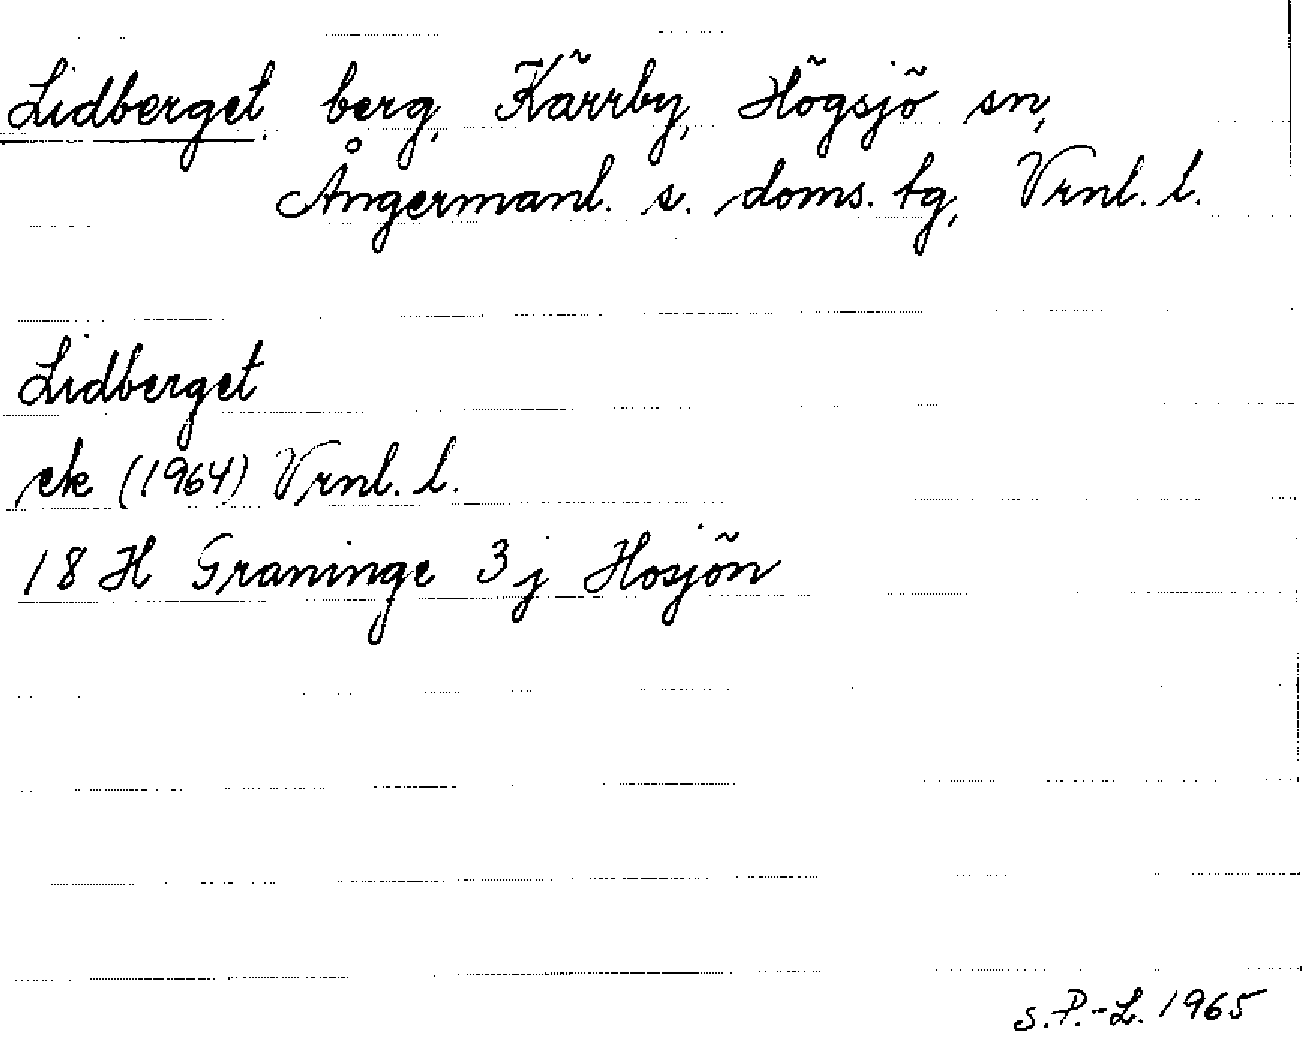 Lidberget, berg, Kärrby, Högsjö sn,
Ångermanl. s. doms. tg, Vrnl. l.
Lidberget
ek (1964) Vrnl. l.
18 H Graninge 3 j Hosjön
S.P.-L. 1965